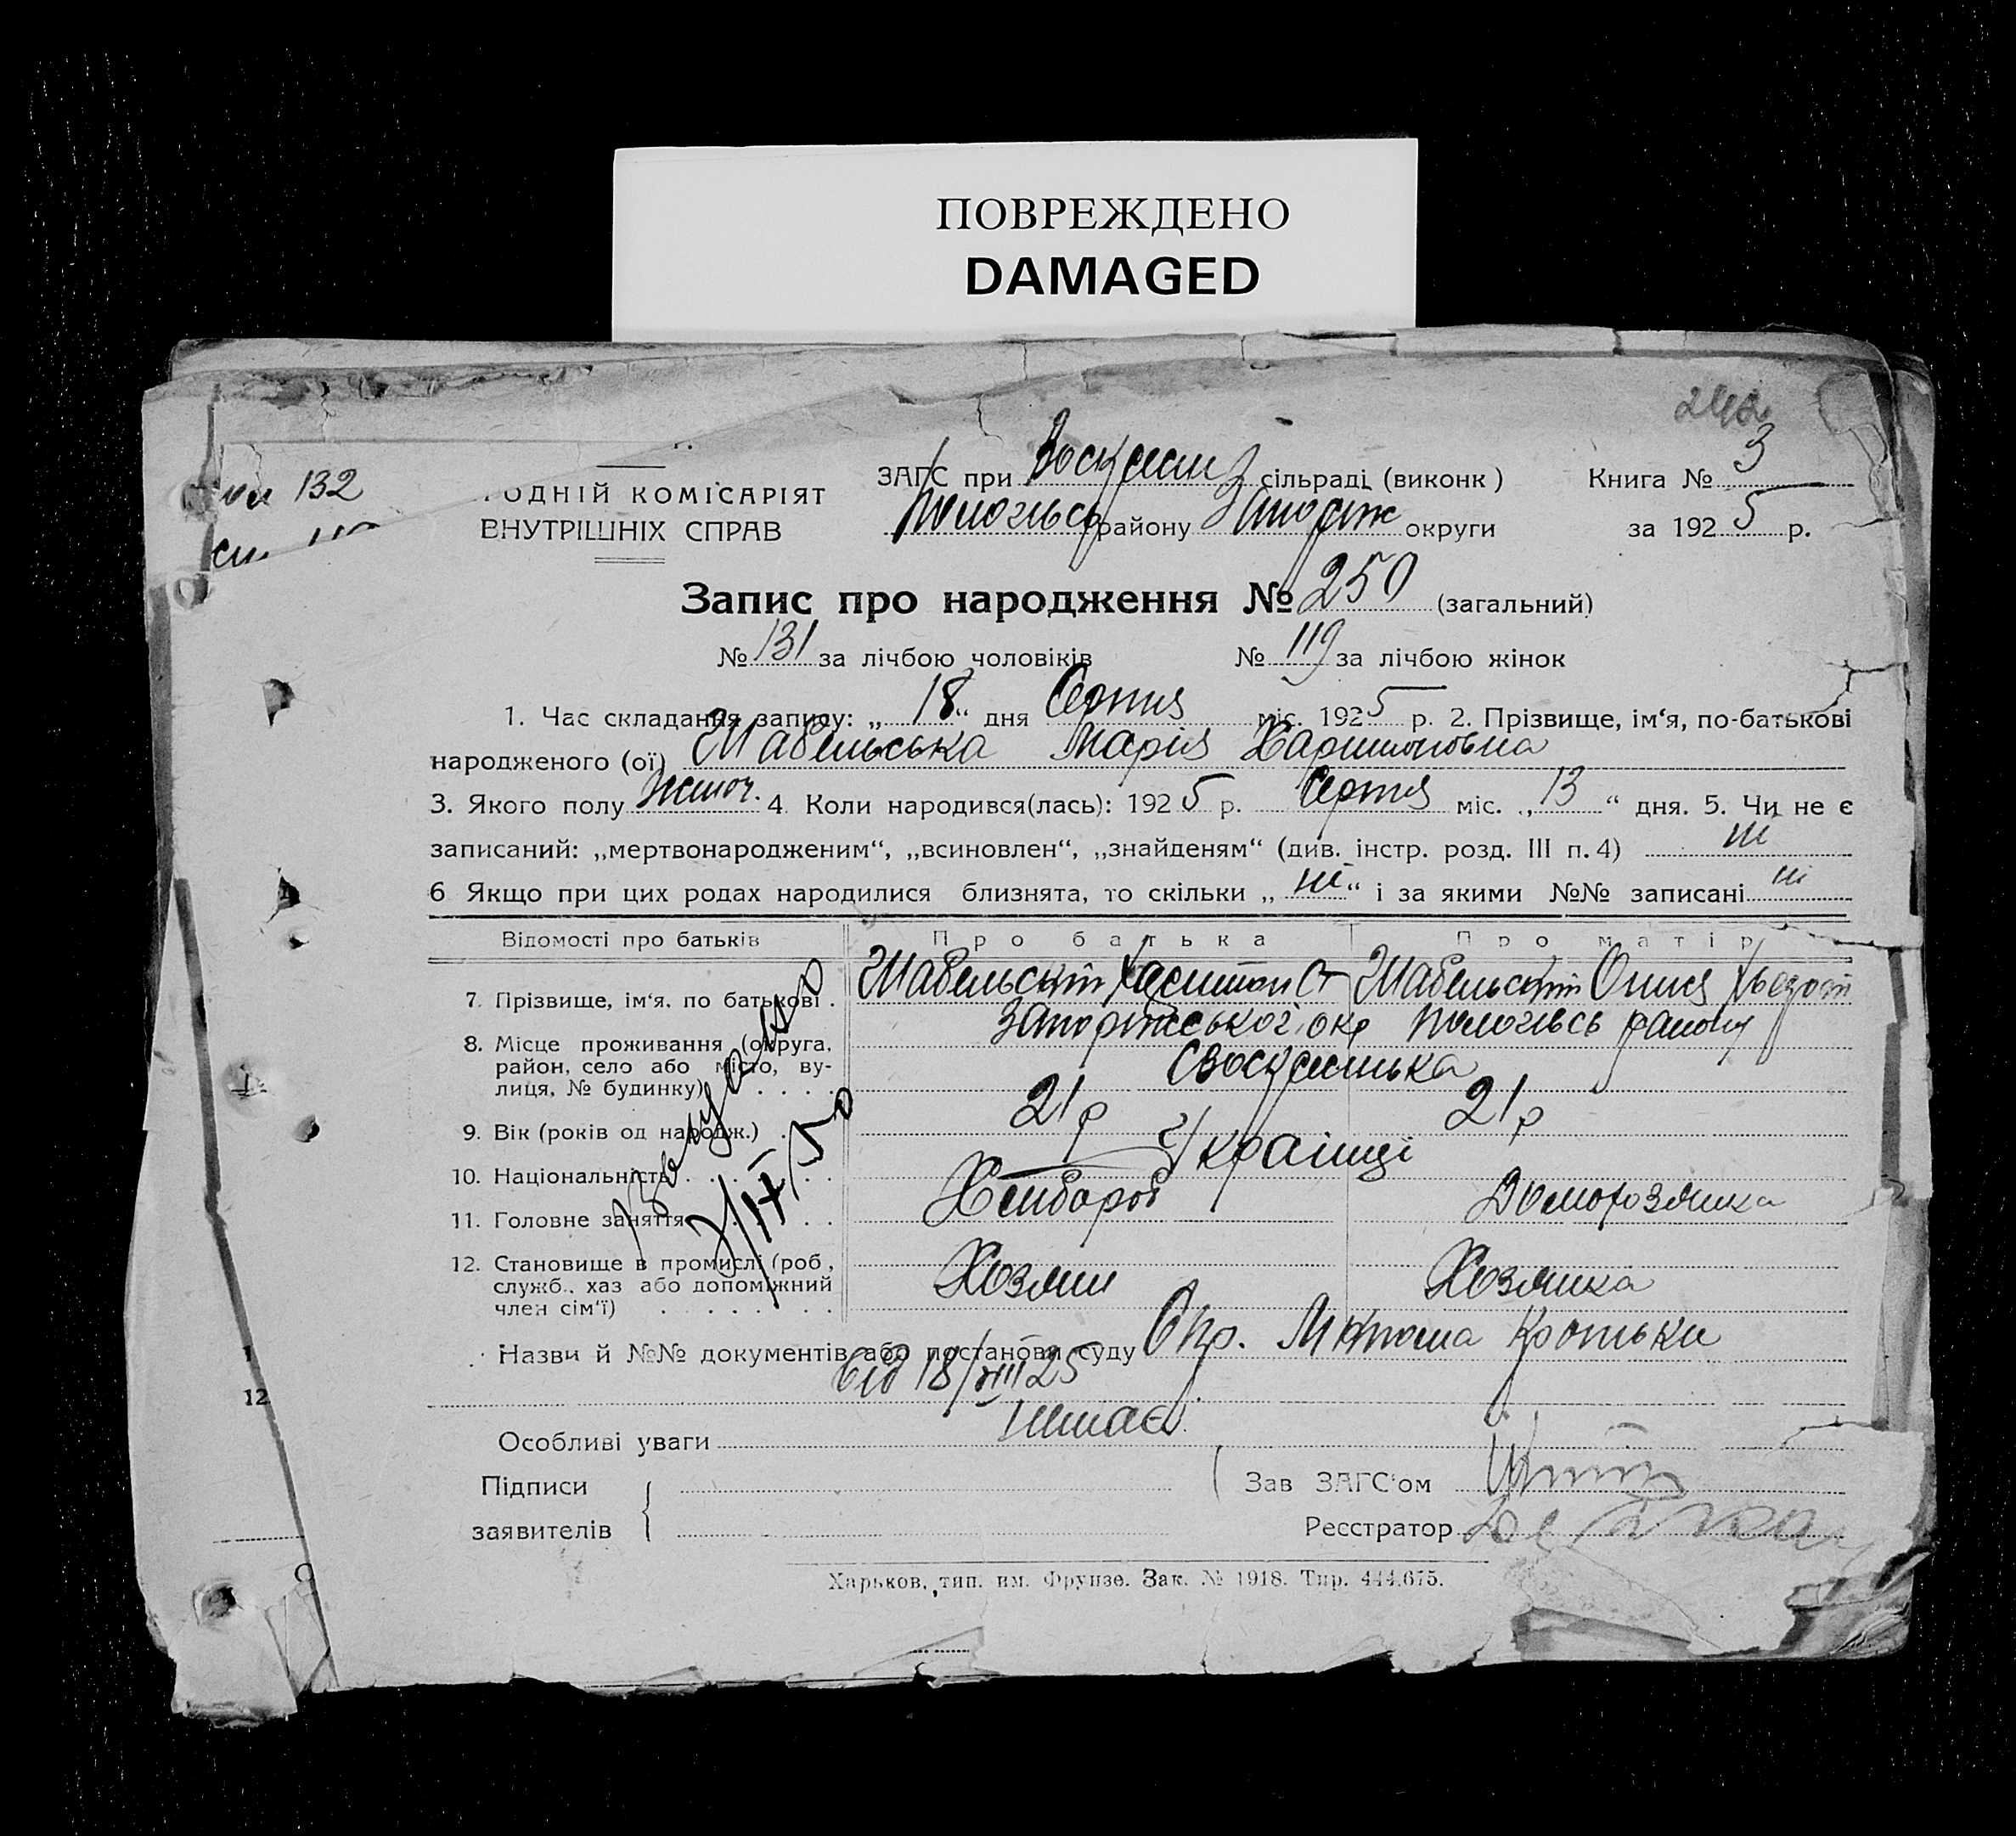 ПОВРЕЖДЕНО
DAMAGED
242
132
ОДНІЙ КОМІСАРІЯТ
ВНУТРІШНІХ СПРАВ
ЗАГС при Воскресен сільраді (виконк) Книга № 3
Пологівсь району Запоріж округи за 1925 р.
Запис про народження № 250 (загальний)
№ 131 за лічбою чоловіків № 119 за лічбою жінок
1. Час складання запису: „18“ дня Серпня міс. 1925 р. 2. Прізвище, ім‘я, по-батькові
народженого (ої) Шабельська Марія Харитоновна
3. Якого полу жіноч. 4. Коли народився(лась): 1925 р. Серпня міс. „13“ дня. 5. Чи не є
записаний: „мертвонародженим“, „всиновлен“, „знайденям“ (див. інстр. розд. III п. 4) ні
6 Якщо при цих родах народилися близнята, то скільки „ні“ і за якими №№ записані ні
Відомості про батьків Про батька Про матір
7. Прізвище, ім‘я, по батькові . Шабельськіт Харитон Ст Шабельськіт
8. Місце проживання (округа, Запоріжської окр Пологівсь району
район, село або місто, ву-
лиця, № будинку) . . . . с Воскресенька
9. Вік (років од народж.) . 21 р 21 р
10. Національність . . . . Українці
11. Головне заняття . . . Хлібороб Домохозяйка
12. Становище в промислі (роб,
служб., хаз або допоміжний Хозяин Хозяйка
член сім‘ї) . . . . . . .
Назви й №№ документів або постанови суду
від 18/VIII 25
Особливі уваги Немає
Підписи Зав ЗАГС‘ом
заявителів Реєстратор
12
Харьков, тип. им. Фрунзе. Зак. № 1918. Тир. 444.675.